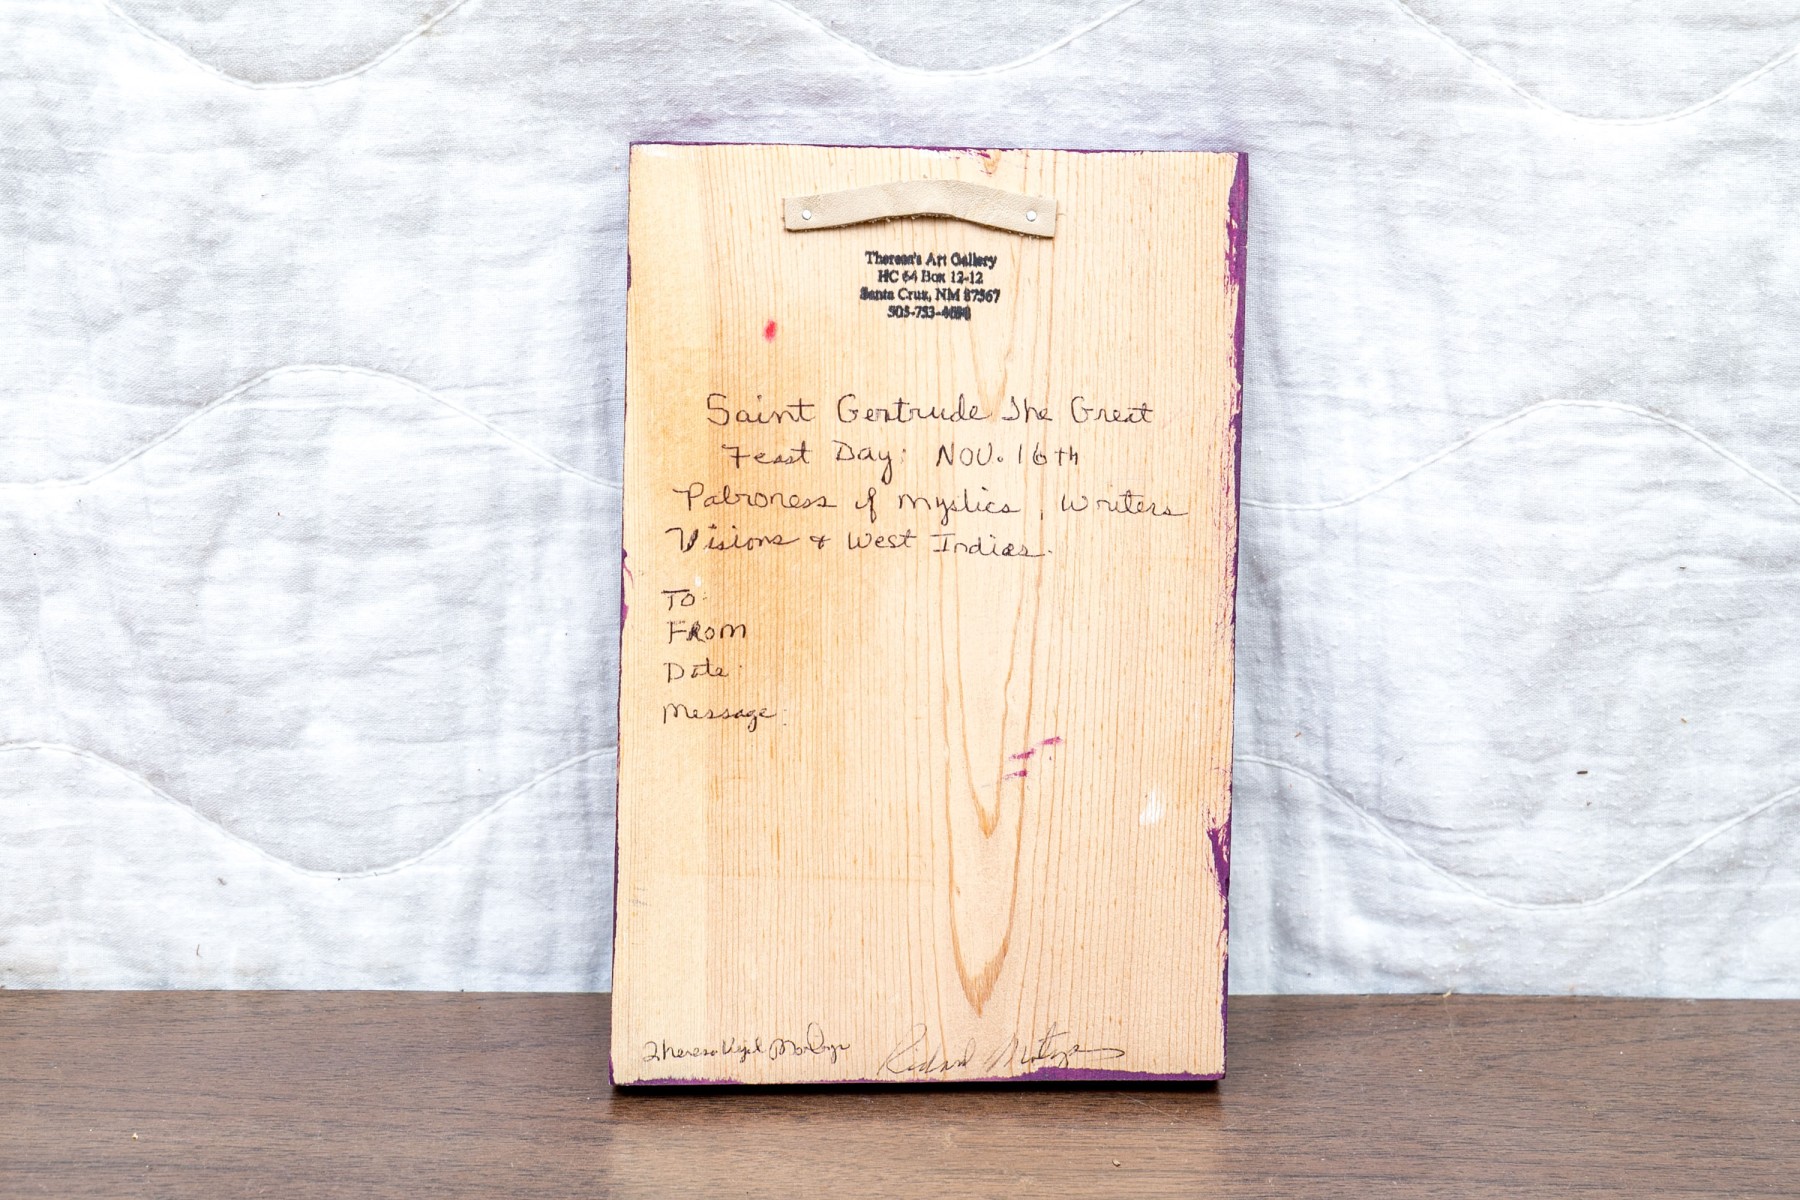 Theresa's Art Gallery
HC 64 Box 12-12
Santa Cruz, NM 87567
505-753-4698
Saint Gertrude The Great
Feast Day: NOV. 16th
Patroness of Mystics, Writers
Visions & West Indies.
To:
From
Date:
Message:
Richard Montoya